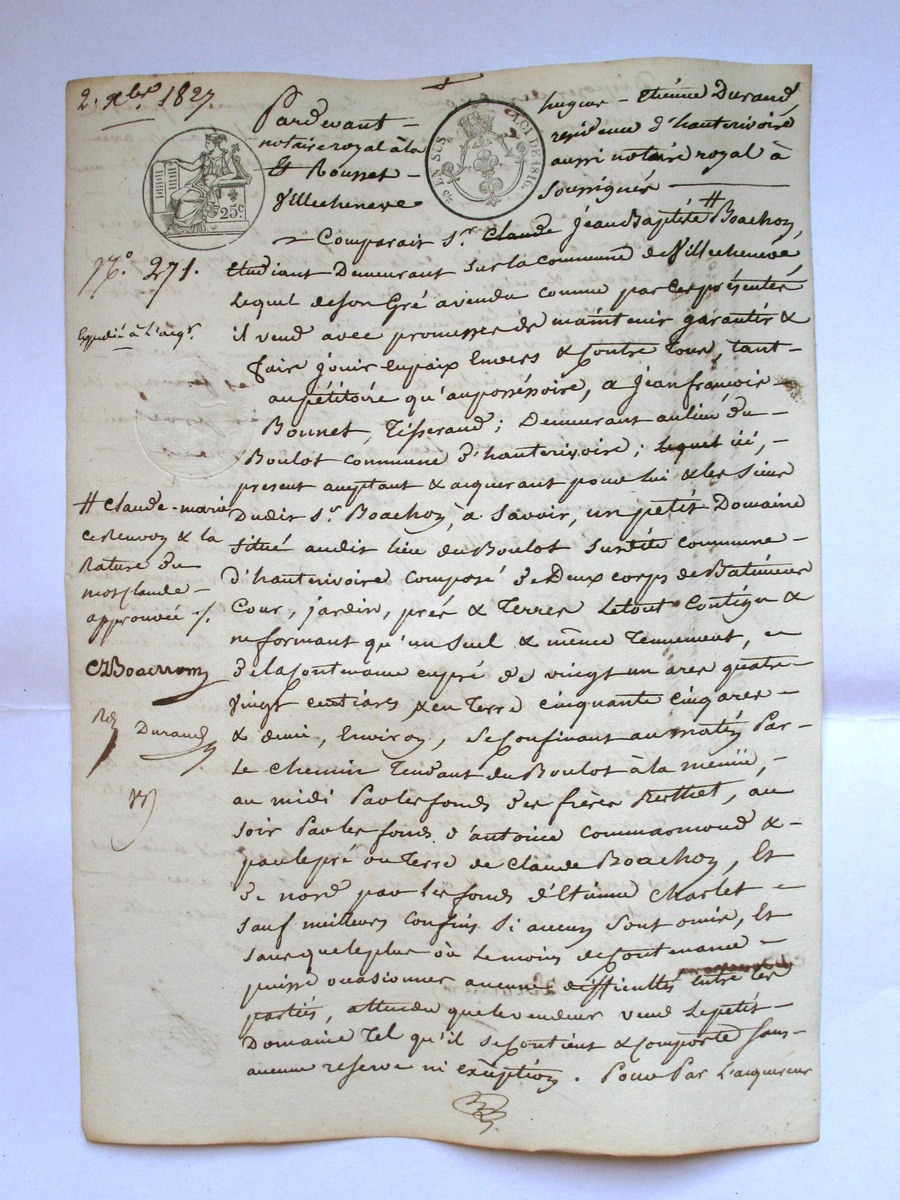 2. Xbre 1827.
Pardevant — hugues - Etiénne Durand,
notaire royal à la résidence d'hauterivoire
& Rousset — aussi notaire royal à
Villecheneve Soussignés —
EN SUS
LOI DE 1816.
25c
N.° 271.
Expedié à L'acqr.
Comparait Sr. Claude Jéan Baptité # Boachon,
Etudiant Demeurant Sur la commune de Villecheneve
Lequel de son Gré a vendu comme par Ces présentés
il vend avec promesses de maintenir garantir &
faire jouir en paix Envers & Contre Tous, tant-
au pétitoire qu'au possessoire, a Jéan françois —
Bonnet, Tisserand; Demeurant au lieu du —
Boulot commune d'hauterivoire; Lequel ici, —
présent acceptant & aquerant pour lui & les siens
Dudit Sr. Boachon, à Savoir, un pétit Domaine
Situé audit lieu du Boulot Susdite commune —
D'hauterivoire Composé de Deux corps de Batiments
Cour, jardin, prés & Terres Le tout Contigu &
ne formant qu'un Seul & même Tennement,
de la Contenance en pré de vingt un ares quatre-
vingt centiares & en Terre cinquante cinq ares —
& demi, Environ, Se Confinant au matin Par-
Le Chemin Tendant du Boulot à la
au midi Par les fonds des frères Berthet, au
soir Par les fonds d'antoine Commarmond & -
par le pré ou Terre de Claude Boachon, Et
de nord par Les fonds d'Etienne Charlet -
sauf meilleurs Confins Si aucuns Sont omis, Et
sans que le plus où Le moins de Contenance —
puisse occasionner aucunes difficultés Entre les
partiés, attendu que le vendeur vend Le petit —
Domaine Tel qu'il Se Contient & Comporte Sans-
aucune reserve ni exéption. Pour Par L'acquereur
# Claude-marie
Ce Renvoy & la
Rature du
mot Claude —
approuvée ./.
CBoachon
Durand